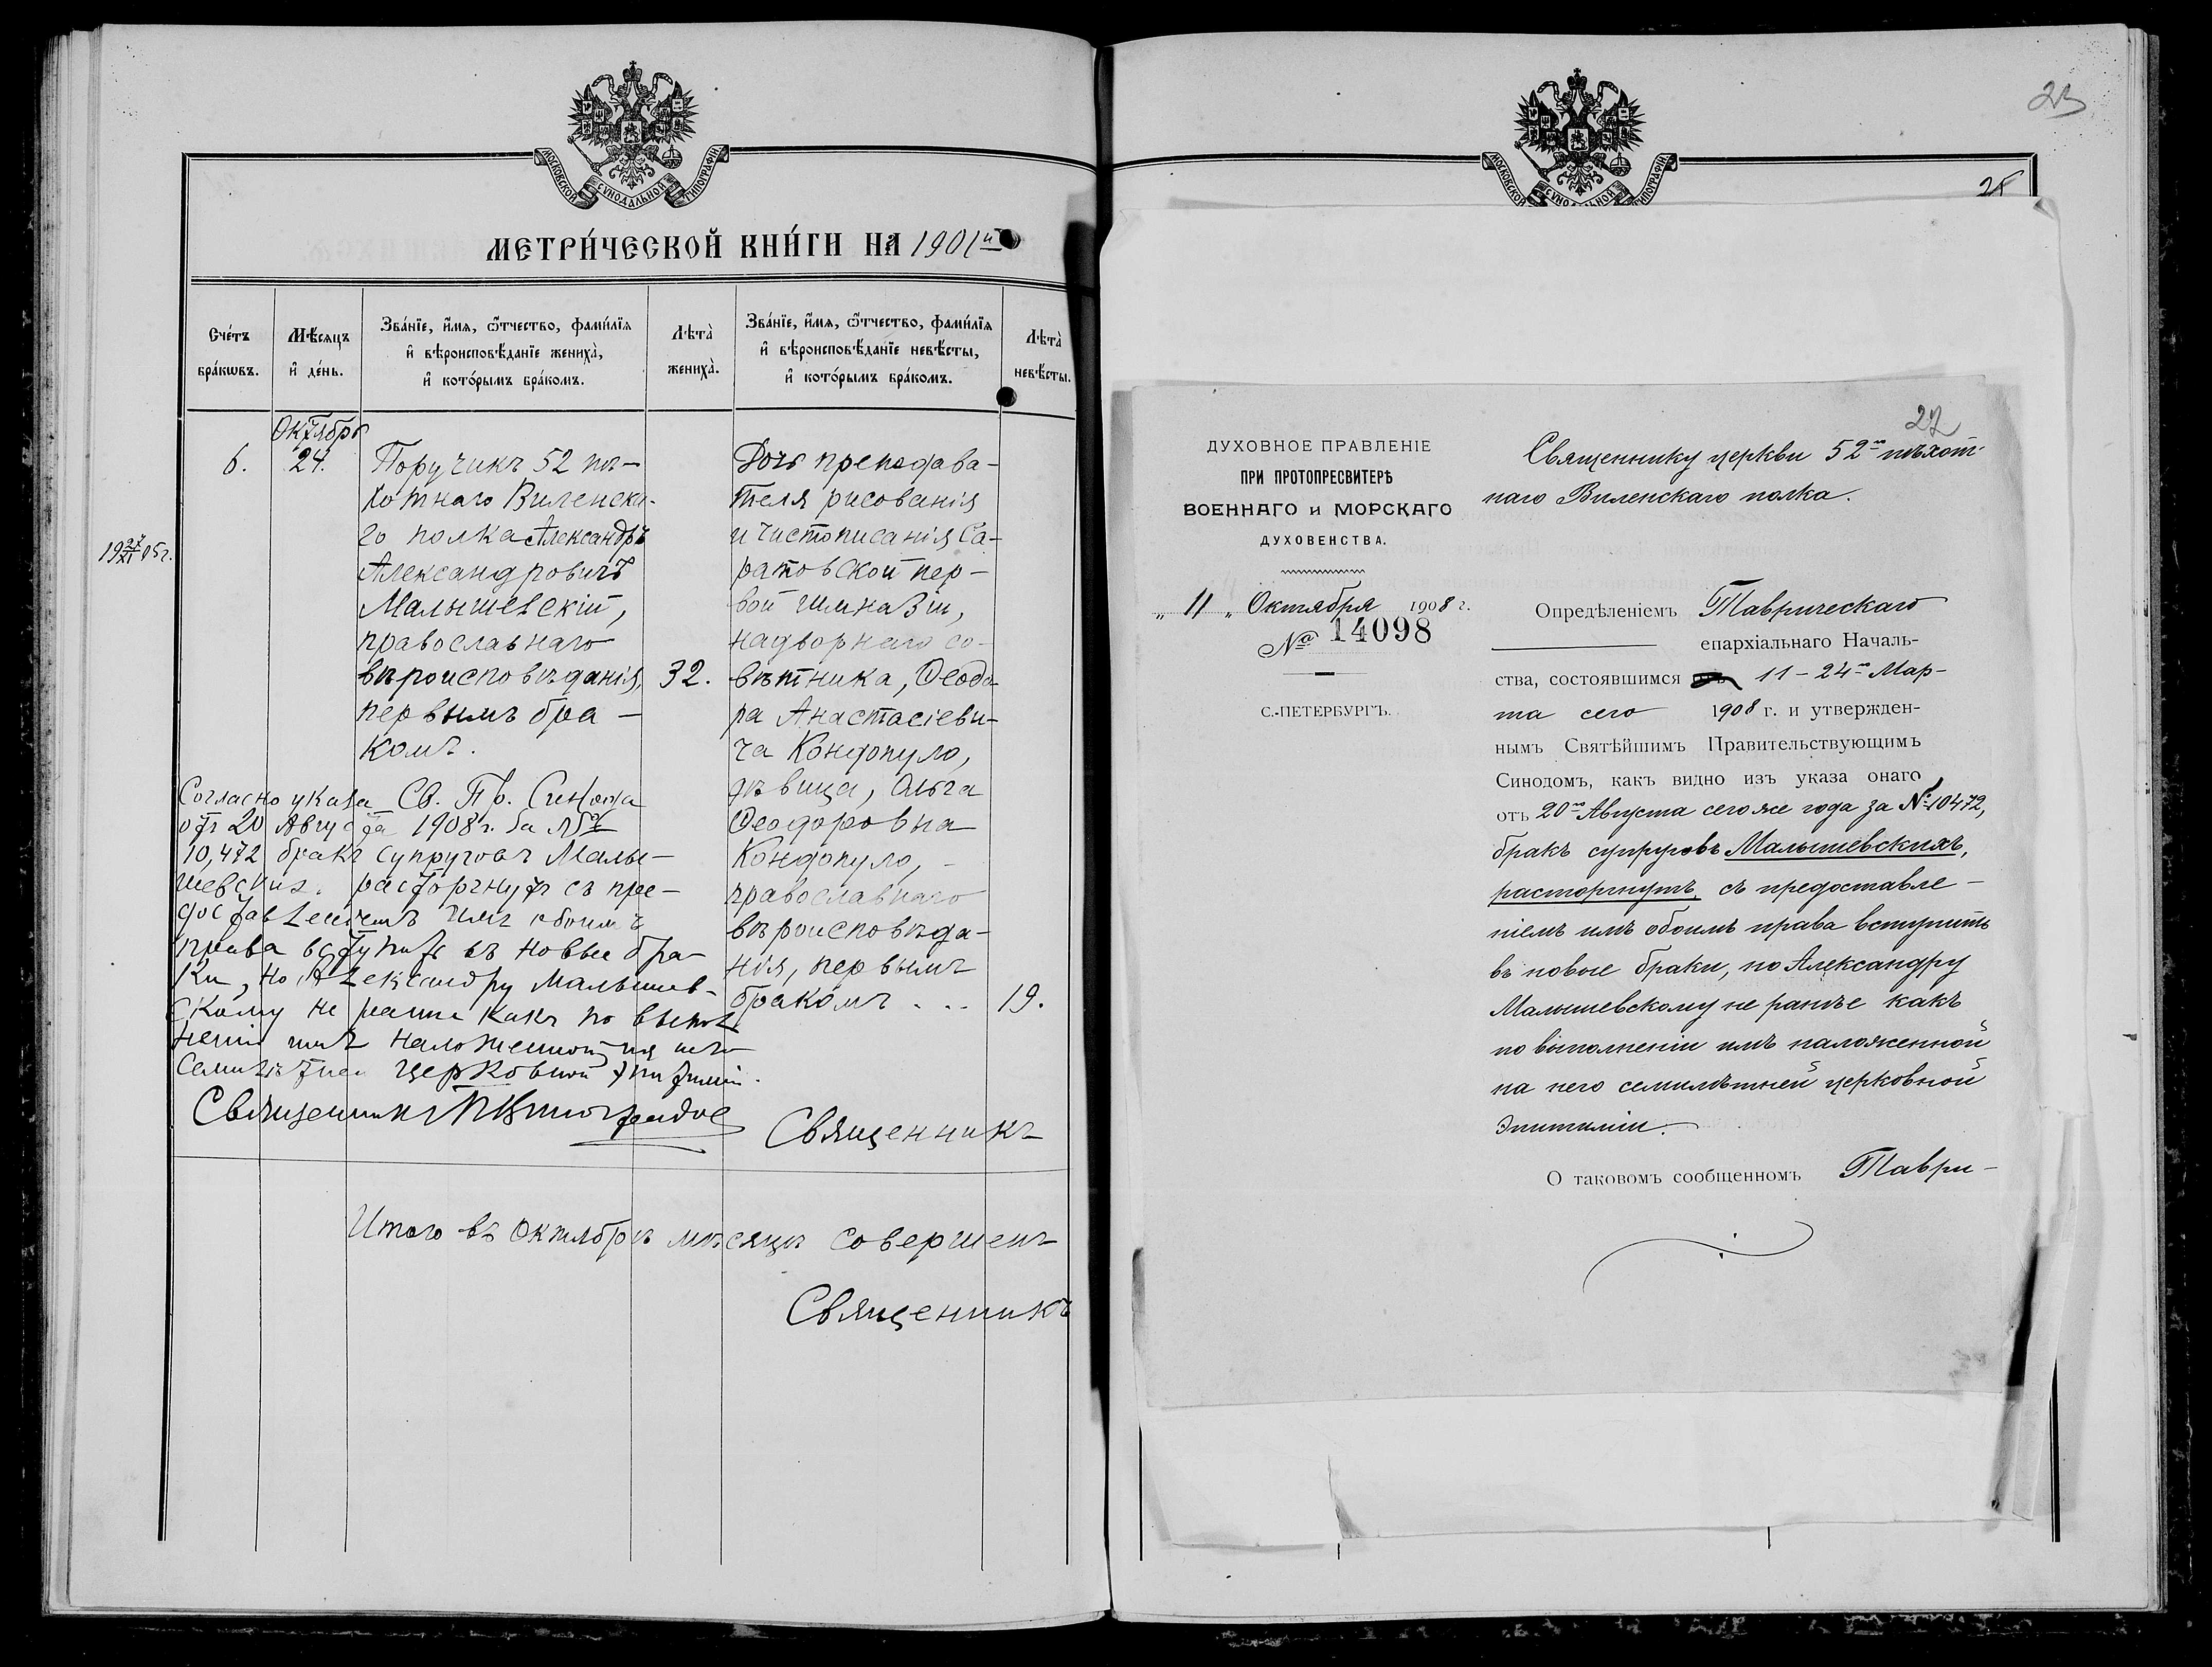 МОСКОВСКОЙ СѴНОДАЛЬНОЙ ТИПОГРАФІИ
МЕТРИ́ЧЕСКОЙ КНИ́ГИ НА 1901й
Сче́тъ бра́кωвъ.
Мѣ́сяцъ и҆ де́нь.
Зва́нїе, и҆́мя, ѻ҆́тчество, фами́лїя
и҆ вѣроисповѣ́данїе жениха̀,
и҆ кото́рымъ бра́комъ.
Лѣта̀ жениха̀.
Зва́нїе, и҆́мя, ѻ҆́тчество, фами́лїя
и҆ вѣроисповѣ́данїе невѣ́сты,
и҆ кото́рымъ бра́комъ.
Лѣта̀ невѣ́сты.
6.
Октября
24.
Поручикъ 52 пѣ-
хотнаго Виленска-
го полка Александръ
Александровичъ
Малышевскій,
православнаго
вѣроисповѣданія,
первымъ бра-
комъ.
32.
Дочь препедава-
теля рисованія
и чистописанія Са-
ратовской пер-
вой гимназіи,
надворнаго со-
вѣтника, Ѳеодо
ра Анастасіеви-
ча Кондопуло,
дѣвица, Ольга
Ѳеодоровна
Кондопуло,
православнаго
вѣроисповѣда-
нія, первымъ
бракомъ . . .
19.
Согласно указа Св. Пр. Синода
отъ 20 Августа 1908 г. за №
10,472 бракъ супруговъ Малы-
шевских. расторгнутъ съ пре-
доставленіемъ имъ обоимъ
права вступить въ новые бра-
ки, но Александру Малышев-
скому не ранѣе какъ по выпол
неніи имъ наложенной на него
семилѣтней церковной эпитиміи.
Священникъ
Священникъ
Итого въ Октябрѣ мѣсяцѣ совершенъ
Священникъ
23
25
МОСКОВСКОЙ СѴНОДАЛЬНОЙ ТИПОГРАФІИ
27
ДУХОВНОЕ ПРАВЛЕНІЕ
ПРИ ПРОТОПРЕСВИТЕРѢ
ВОЕННАГО и МОРСКАГО
ДУХОВЕНСТВА.
„ 11 „ Октября 1908 г.
№ 14098
С.-ПЕТЕРБУРГЪ.
Священнику церкви 52го пѣхот-
наго Виленскаго полка.
Опредѣленіемъ Таврическаго
епархіальнаго Началь-
ства, состоявшимся 11-24го Мар-
та сего 1908 г. и утвержден-
нымъ Святѣйшимъ Правительствующимъ
Синодомъ, какъ видно изъ указа онаго
отъ 20го Августа сего же года за № 10472,
бракъ супруговъ Малышевскихъ,
расторгнутъ, съ предоставле-
ніемъ имъ обоимъ права вступить
въ новые браки, но Александру
Малышевскому не ранѣе какъ
по выполненіи имъ наложенной
на него семилѣтней церковной
эпитиміи.
О таковомъ сообщенномъ Таври-